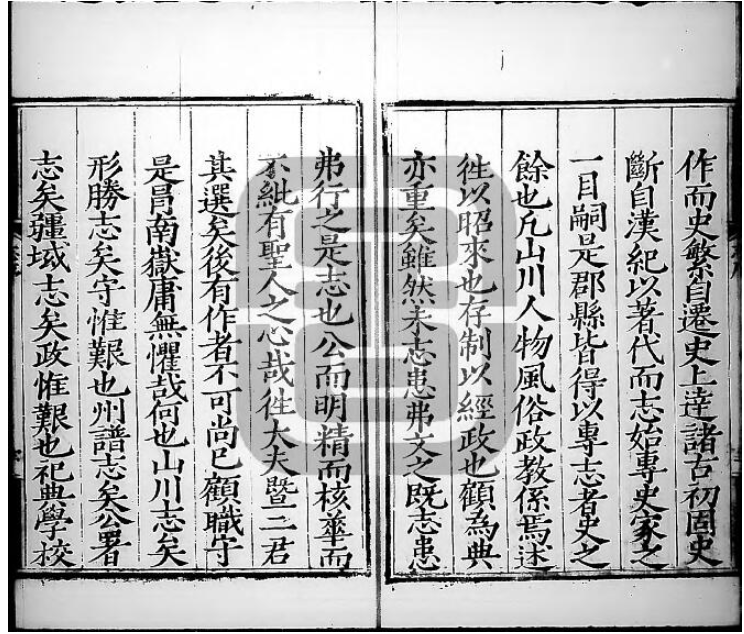 作而史繁自遷史上逹諸古初固史
斷自漢紀以著代而志始專史家之
一目嗣是郡縣皆得以專志者史之
餘也凡山川人物風俗政教係焉述
徃以昭來也存制以經政也顧為典
亦重矣雖然未志患弗文之既志患
弗行之是志也公而明精而核華而
不紕有聖人之心哉徃大夫暨二君
其選矣後有作者不可尚已顧職守
是昌南嶽庸無懼哉何也山川志矣
形勝志矣守惟艱也州譜志矣公署
志矣疆域志矣政惟艱也祀典學校